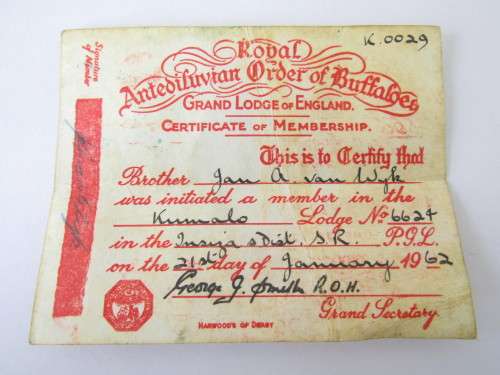 K.0029
Royal
Antediluvian Order of Buffaloes
GRAND LODGE OF ENGLAND.
CERTIFICATE OF MEMBERSHIP.
This is to Certify that
Brother Jan A. van Wyk
was initiated a member in the
Kumalo Lodge No 6624
in the Insiza & Dist. S.R. P.G.L.
on the 21st day of January 1962
George J. Smith R.O.H.
Grand Secretary.
HARWOOD'S OF DERBY
Signature
of Member